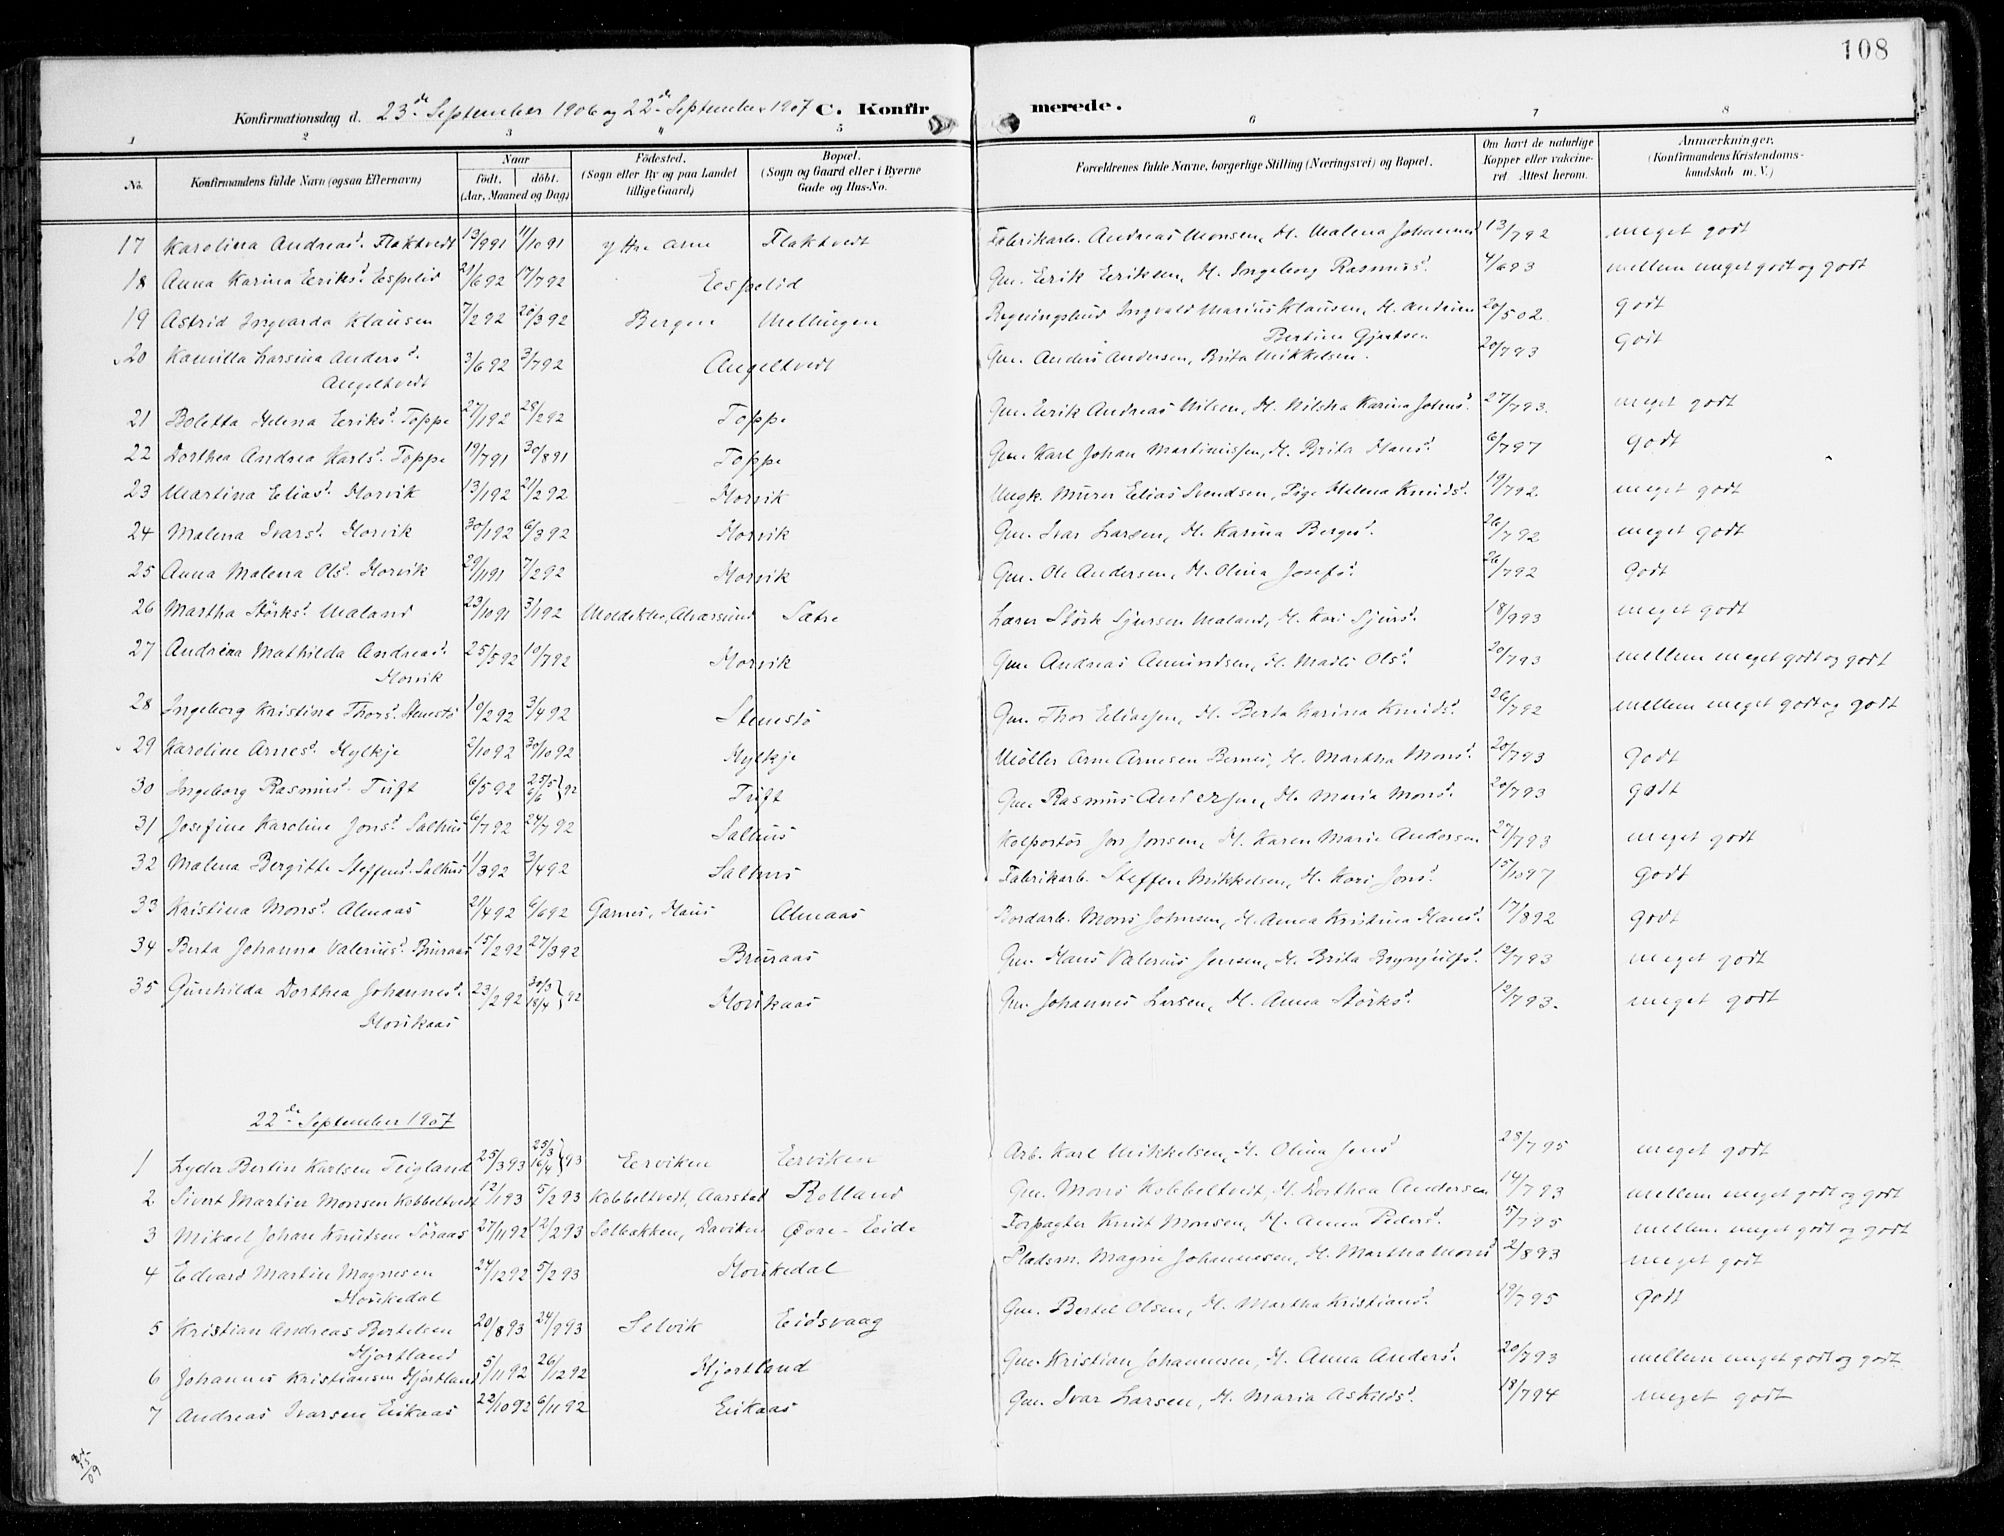 108
Konfirmationsdag d. 23de September 1906 og 22de September 1907 C. Konfirmerede.
1 2 3 4 5 6 7 8
No. Konfirmandens fulde Navn (ogsaa Efternavn) Naar født. døbt. (Aar, Maaned og Dag) Födested. (Sogn eller By og paa Landet tillige Gaard) Bopæl. (Sogn og Gaard eller i Byerne Gade og Hus-No. Forældrenes fulde Navne, borgerlige Stilling (Næringsvei) og Bopæl. Om havt de naturlige Kopper eller vaccineret Attest herom. Anmærkninger. (Konfirmandens Kristendomskundskab m. V.)
17 Karolina Andreasd. Flaktvedt 13/9 91 11/10 91 Yttre Arne Flaktvedt Fabrikarb. Andreas Monsen, H. Malena Johannesd 13/7 92 meget godt
18 Anna Karina Eriksd. Espelid 21/6 92 17/7 92 Espelid Gm. Erik Eriksen, H. Ingeborg Rasmusd. 4/6 93 mellem meget godt og godt
19 Astrid Ingvarda Klausen 7/2 92 20/3 92 Bergen Mellingen Bygningssnd Ingvald Marius Klausen, H. Andrine Bertine Gjertsen 20/5 02 godt
20 Kamilla Larsina Andersd. Angeltvedt 3/6 92 3/7 92 Angeltvedt Gm. Anders Andersen, Brita Mikkelsen. 20/7 93 godt
21 Boletta Helena Eriksd. Toppe 27/1 92 28/2 92 Toppe Gm. Erik Andreas Nilsen, H. Nilsha Karina Johnsd. 27/7 93. meget godt
22 Dorthea Andrea Karlsd. Toppe 19/7 91 30/8 91 Toppe Gm. Karl Johan Martinussen, H. Brita Hansd. 6/7 97 godt
23 Martina Eliasd. Horvik 13/1 92 21/2 92 Horvik Ungk. Murer Elias Svendsen, Pige Helena Knudsd. 19/7 92. meget godt
24 Malena Ivarsd. Horvik 30/1 92 6/3 92 Horvik Gm. Ivar Larsen, H. Karina Bergesd. 26/7 92 meget godt
25 Anna Malena Olsd. Horvik 29/11 91 7/2 92 Horvik Gm. Ole Andersen, H. Olina Josefsd. 26/7 92 Godt
26 Martha Størksd. Maland 23/10 91 3/1 92 Moldeklev, Alversund Sætre Lærer Størk Sjursen Maland, H. Kari Sjursd. 18/9 93 meget godt
27 Andrea Mathilda Andreasd. Horvik 25/5 92 10/7 92 Horvik Gm. Andreas Amundsen, H. Madli Olsd. 20/7 93 mellem meget godt og godt
28 Ingeborg Kristina Thorsd. Stenestø 10/2 92 3/4 92 Stenestø Gm. Thor Eliassen, H. Berta Karina Knudsd. 26/7 92 mellem meget godt og godt
29 Karoline Arnesd. Hylkje 2/10 92 30/10 92 Hylkje Møller Arne Arnesen Bernes, H. Martha Monsd. 20/7 93 Godt
30 Ingeborg Rasmusd. Tuft 6/5 92 25/5 6/6 } 92 Tuft Gm. Rasmus Andersen, H. Maria Monsd. 20/7 93 godt
31 Josefine Karoline Jonsd. Salhus 6/7 92 24/7 92 Salhus Kolportør Jon Jonsen, H. Karen Marie Andersen 27/7 93 meget godt
32 Malena Bergitte Steffensd. Salhus 1/3 92 3/4 92 Salhus Fabrikarb. Steffen Mikkelsen, H. Kari Jonsd. 15/10 97 Godt
33 Kristina Monsd. Almaas 21/4 92 6/6 92 Garnes, Haus Almaas Jordarb. Mons Johnsen, H. Anna Kristina Hansd. 17/8 92 godt
34 Berta Johanna Valeriusd. Bruraas 15/2 92 27/3 92 Bruraas Gm. Hans Valerius Jensen, H. Brita Brynjulfsd. 12/7 93 meget godt
35 Gunhilda Dorthea Johannesd. Haukaas 23/2 92 30/3 18/4 } 92 Haukaas Gm. Johannes Larsen, H. Anna Størksd. 12/7 93. meget godt
22de September 1907
1 Lyder Bertin Karlsen Teigland 25/3 93 25/3 16/4 } 93 Eerviken Eerviken Arb. Karl Mikkelsen, H. Olina Jensd 28/7 95 meget godt
2 Sivert Martin Monsen Kobbeltvedt 12/1 93 5/2 93 Kobbeltvedt, Aarstad Rolland Gm. Mons Kobbeltvedt, H. Dorthea Andersen 14/7 93 mellem meget godt og godt
3 Mikael Johan Knutsen Søraas 27/11 92 12/2 93 Solbakken, Daviken Øvre-Eide Forpagter Knut Monsen, H. Anna Pedersd. 5/7 95 mellem meget godt og godt
4 Edvard Martin Magnesen Haukedal 24/12 92 5/2 93 Haukedal Pladsm. Magne Johannesen, H. Martha Monsd 2/8 93 meget godt
5 Kristian Andreas Bertelsen Hjortland 20/8 93 24/9 93 Selvik Eidsvaag Gm. Bertel Olsen, H. Martha Kristiansd. 19/7 95 godt
6 Johannes Kristiansen Hjortland 5/11 92 26/12 92 Hjortland Gm. Kristian Johannesen, H. Anna Andersd. 20/7 93 mellem meget godt og godt
7 Andreas Ivarsen Eikaas 22/10 92 6/11 92 Eikaas Gm. Ivar Larsen, H. Maria Askildsd. 18/7 94 meget godt